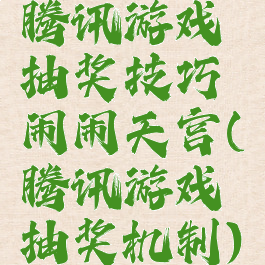 腾讯游戏
抽奖技巧
闹闹天宫(
腾讯游戏
抽奖机制)